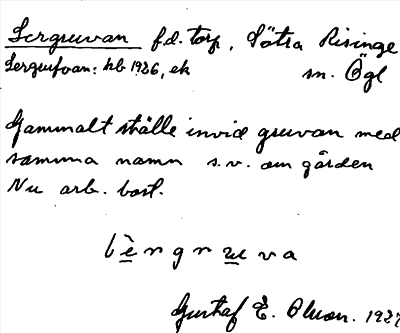 Lergruvan f.d. torp, Sötra Risinge
Lergrufvan: hb 1926, ek sn. Ögl
Gammalt ställe invid gruvan med
samma namn s.v. om gården
Nu arb. bost.
lèngnuva
Gustaf E. Olsson. 1927